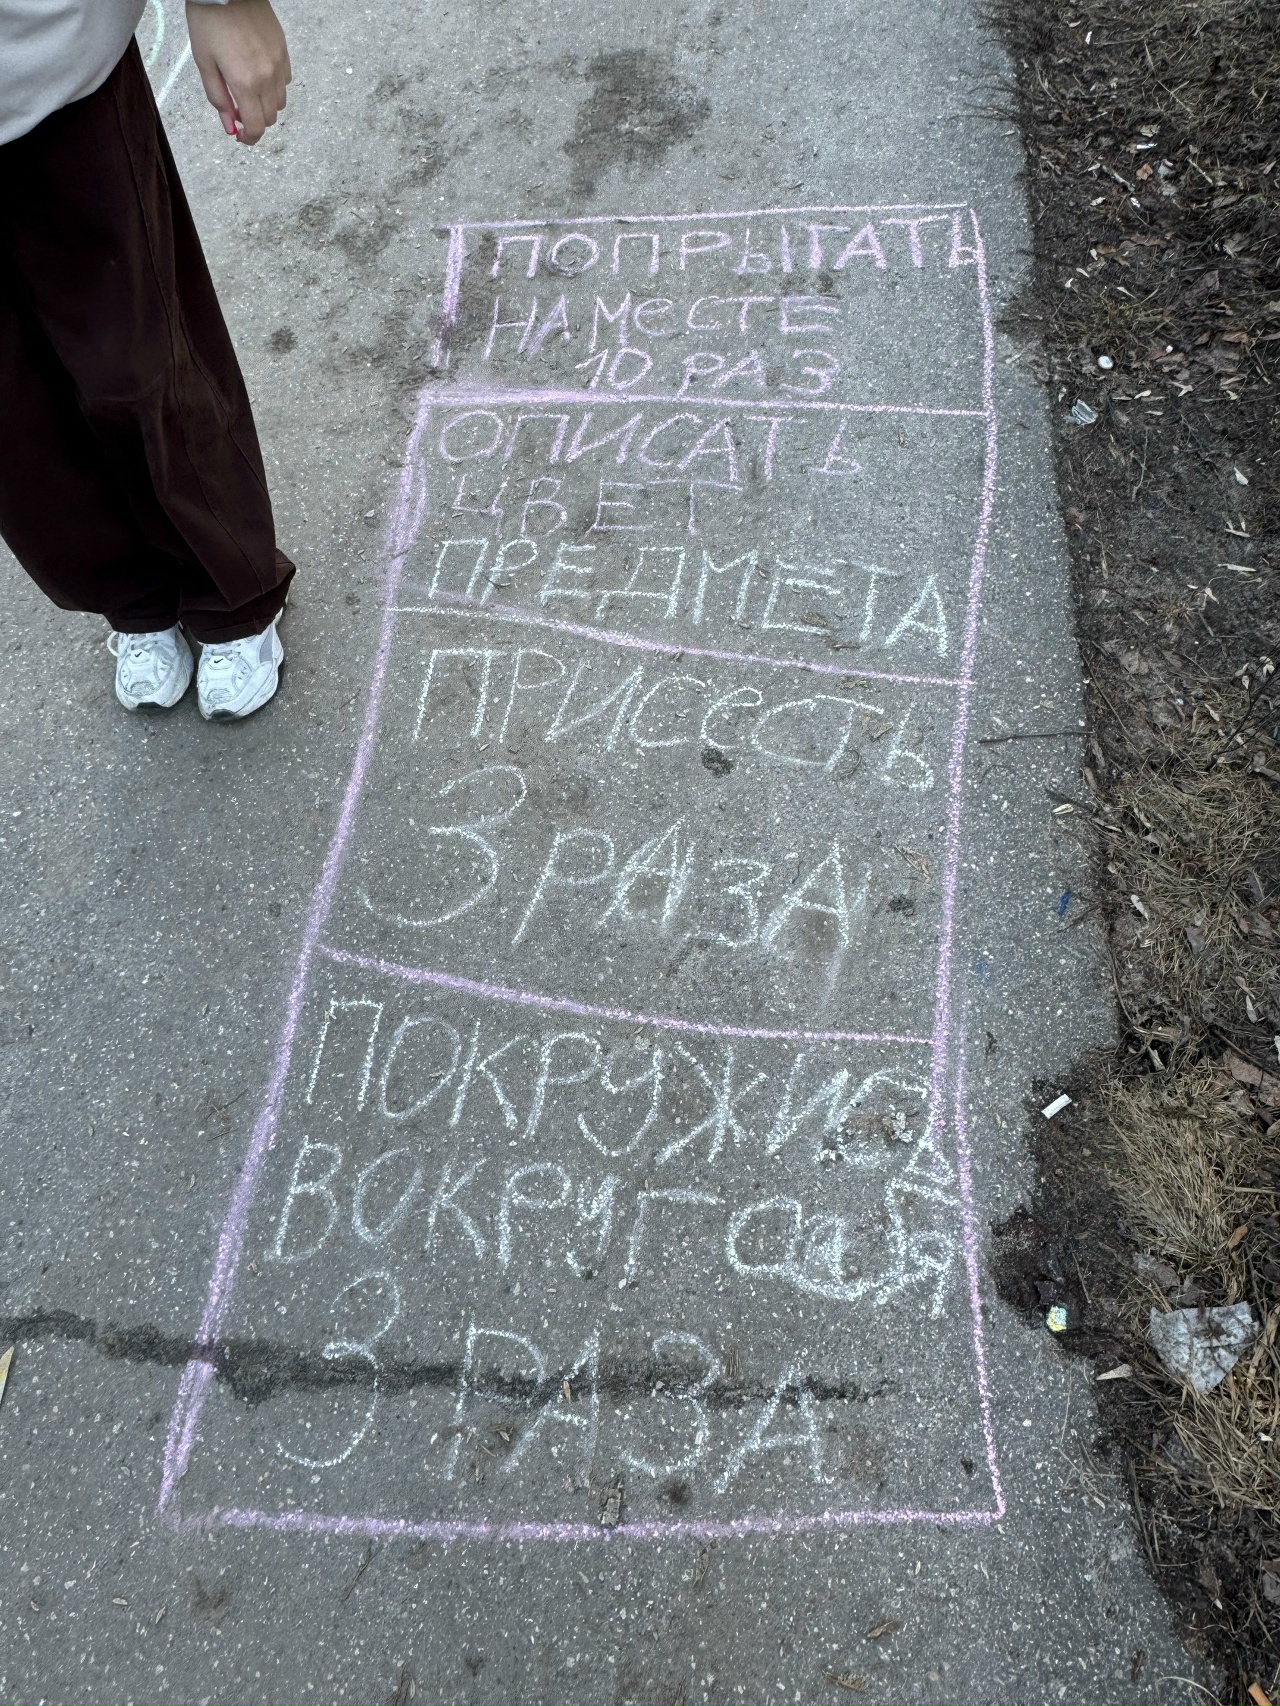 ПОПРЫГАТЬ
НА МеСТЕ
10 РАЗ
ОПИСАТЬ
ЦВЕТ
ПРЕДМЕТА
ПРИСеСТЬ
3 РАЗА
ВОКРУГ
3 РАЗА